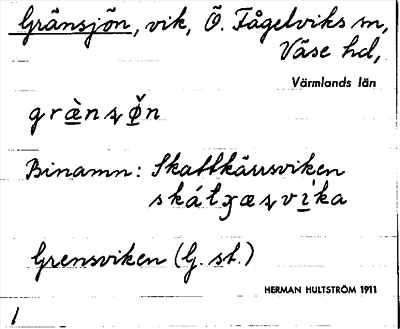 Gränsjön, vik, Ö. Fågelviks sn,
Väse hd,
Värmlands län
Binamn: Skattkärrsviken
Grensviken (G. st.)
HERMAN HULTSTRÖM 1911
1